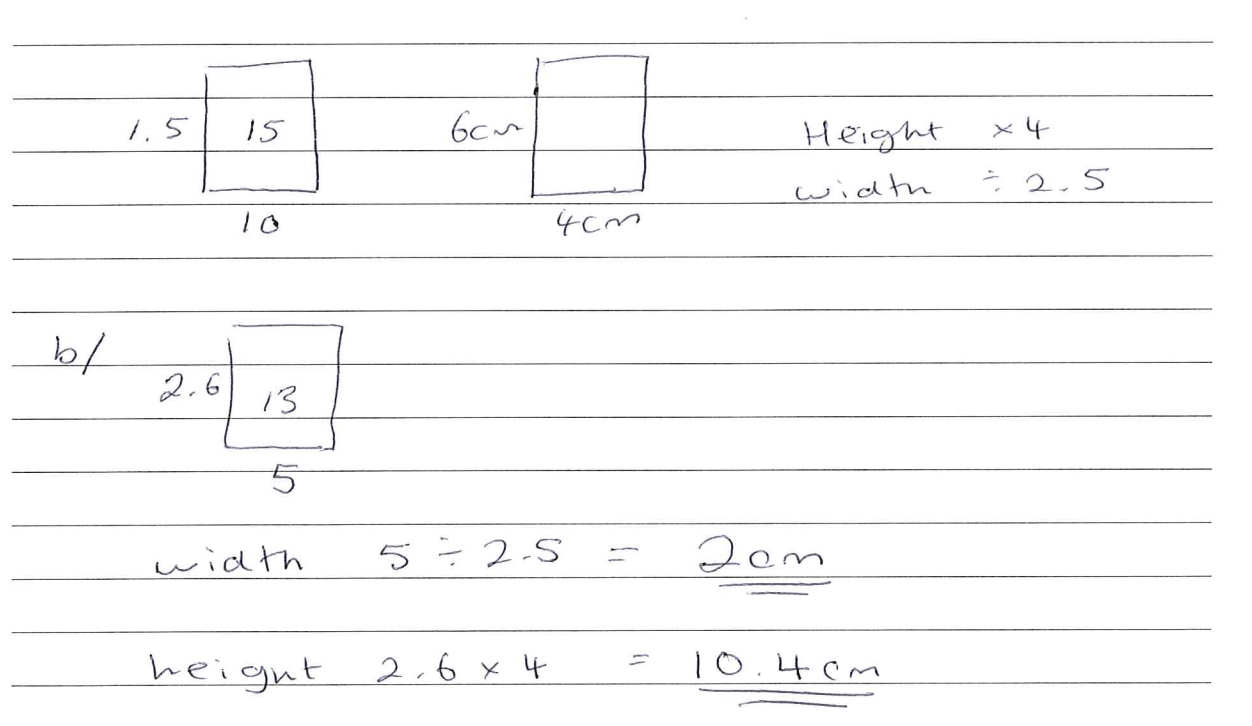 1.5 15 6cm Height × 4
width ÷ 2.5
10 4cm
b/
2.6 13
5
width 5 ÷ 2.5 = 2cm
height 2.6 × 4 = 10.4cm